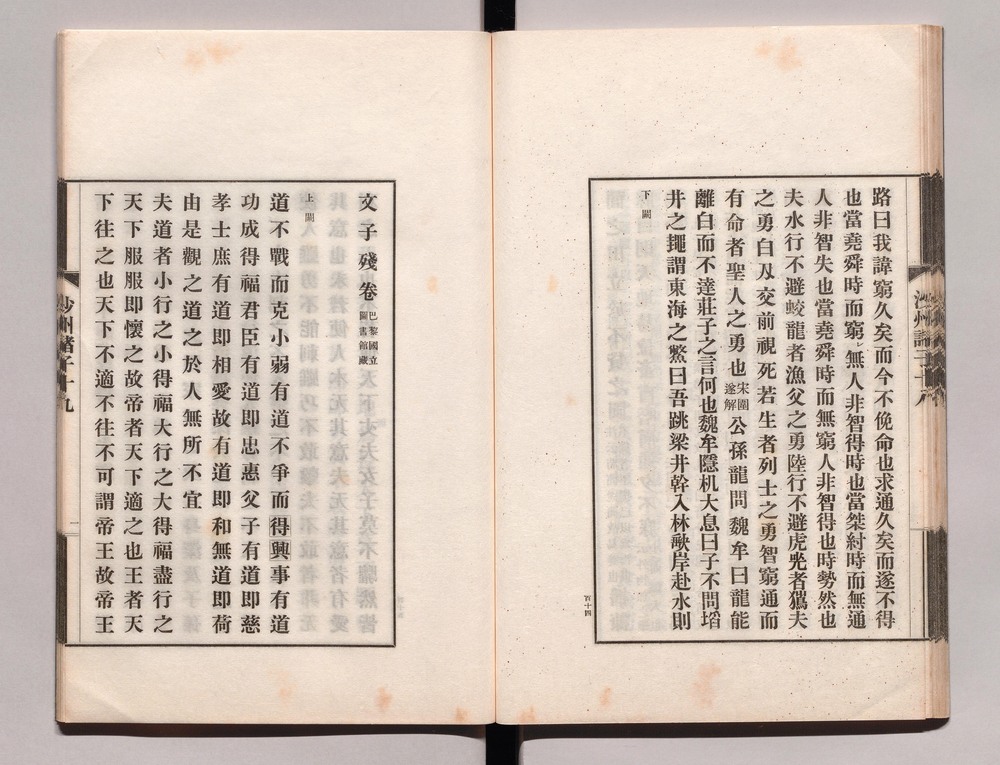 路曰我諱窮久矣而今不俛命也求通久矣而遂不得
也當堯舜時而窮無人非智得時也當桀紂時而無通
人非智失也當堯舜時而無窮人非智得也時勢然也
夫水行不避蛟龍者漁父之勇陸行不避虎兕者獵夫
之勇白刄交前視死若生者列士之勇智窮通而
有命者聖人之勇也宋圍遂解公孫龍問魏牟曰龍能
離白而不達莊子之言何也魏牟隱机大息曰子不問埳
井之䵷謂東海之鱉曰吾跳梁井幹入林畝岸赴水則
下闕
百十四
文子殘卷巴黎國立圖書館藏
上闕
道不戰而克小弱有道不爭而得興事有道
功成得福君臣有道即忠惠父子有道即慈
孝士庶有道即相愛故有道即和無道即荷
由是觀之道之於人無所不宜
夫道者小行之小得福大行之大得福盡行之
天下服服即懷之故帝者天下適之也王者天
下往之也天下不適不往不可謂帝王故帝王